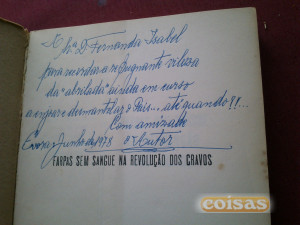 À Sr.ª D. Fernanda Isabel
para recordar a repugnante vileza
da "abrilada" ainda em curso
a expor e desmantelar o País... até quando?!...
Com amizade
Junho de 1978 o Autor
FARPAS SEM SANGUE NA REVOLUÇÃO DOS CRAVOS
coisas